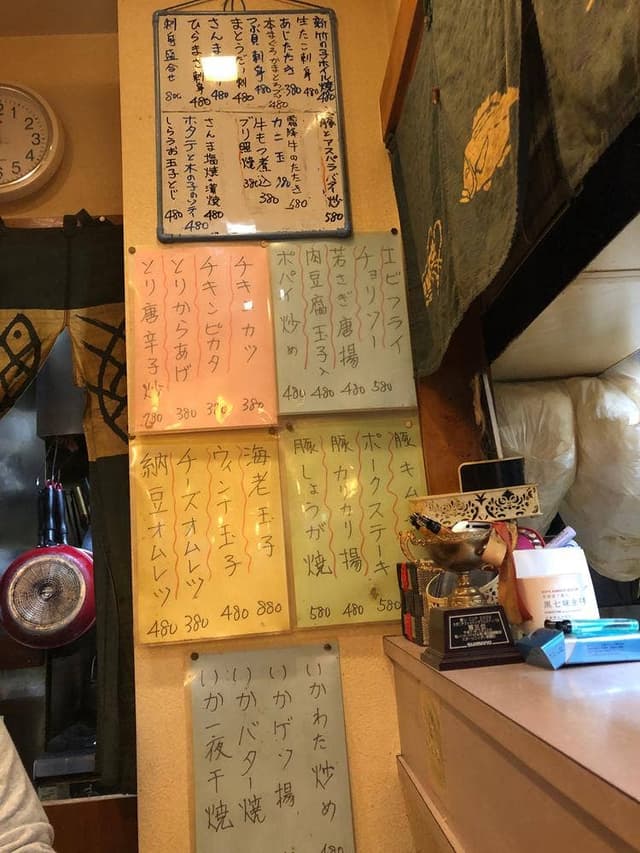 新竹の子ホイル焼 480
生たこ刺身 480
あじたたき 380
本まぐろ
480
つぶ貝刺身 480
まとうだい刺 480
さんま
480
ひらまさ刺身 480
刺身盛合せ 800
豚とアスパラバター炒 580
霜降牛のたたき 580
カニ玉
牛もつ煮込 380
ブリ照焼 380
さんま塩焼・蒲焼 480
ホタテと木の子のソテー 480
しらうお玉子とじ 480
エビフライ 580
チョリソー 480
若さぎ唐揚 480
肉豆腐玉子入 480
ポパイ炒め 480
チキンカツ 380
チキンピカタ
とりからあげ 380
とり唐辛子炒
海老玉子 880
ウィンナ玉子 480
チーズオムレツ 380
納豆オムレツ 480
豚キム
ポークステーキ 580
豚カリカリ揚 480
豚しょうが焼 580
いかわた炒め 480
いかゲソ揚
いかバター焼
いか一夜干焼
黒七味